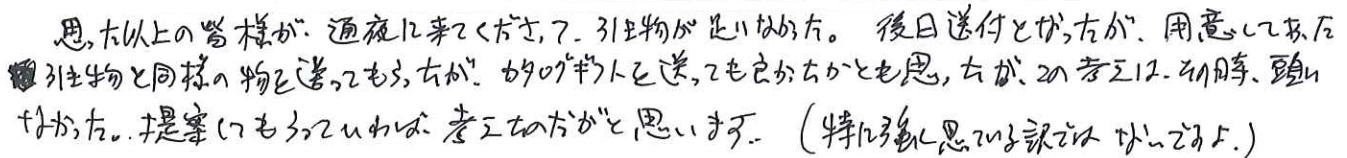 思った以上の皆様が、通夜に来てくださって、引出物が足りなかった。後日送付となったが、用意してあった
引出物と同様の物を送ってもらったが、カタログギフトを送っても良かったかとも思ったが、この考えは、その時、頭に
なかった。提案してもらっていれば、考えたのだがと思います。(特に強く思っている訳ではないですよ。)